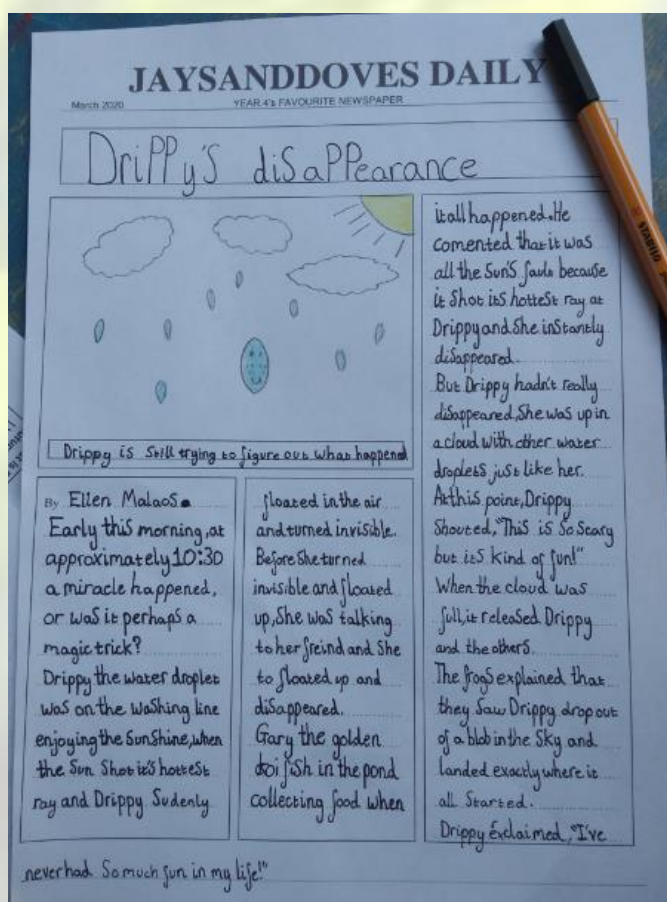 JAYSANDDOVES DAILY
March 2020
YEAR 4's FAVOURITE NEWSPAPER
Drippy's disappearance
Drippy is still trying to figure out what happened
By Ellen Malaos.
Early this morning, at
approximately 10:30
a miracle happened,
or was it perhaps a
magic trick?
Drippy the water droplet
was on the washing line
enjoying the sunshine, when
the sun shot it's hottest
ray and Drippy sudenly
floated in the air
and turned invisible.
Before she turned
invisible and floated
up, she was talking
to her freind and she
to floated up and
disappeared.
Gary the golden
koi fish in the pond
collecting food when
it all happened. He
comented that it was
all the sun's fault because
it shot its hottest ray at
Drippy and she instantly
disappeared.
But Drippy hadn't really
disappeared, she was up in
a cloud with other water
droplets just like her.
At this point, Drippy
shouted, "This is so scary
but its kind of fun!"
When the cloud was
full, it released Drippy
and the others.
The frogs explained that
they saw Drippy drop out
of a blob in the sky and
landed exactly where it
all started.
Drippy exclaimed, "I've
never had so much fun in my life!"
STABILO